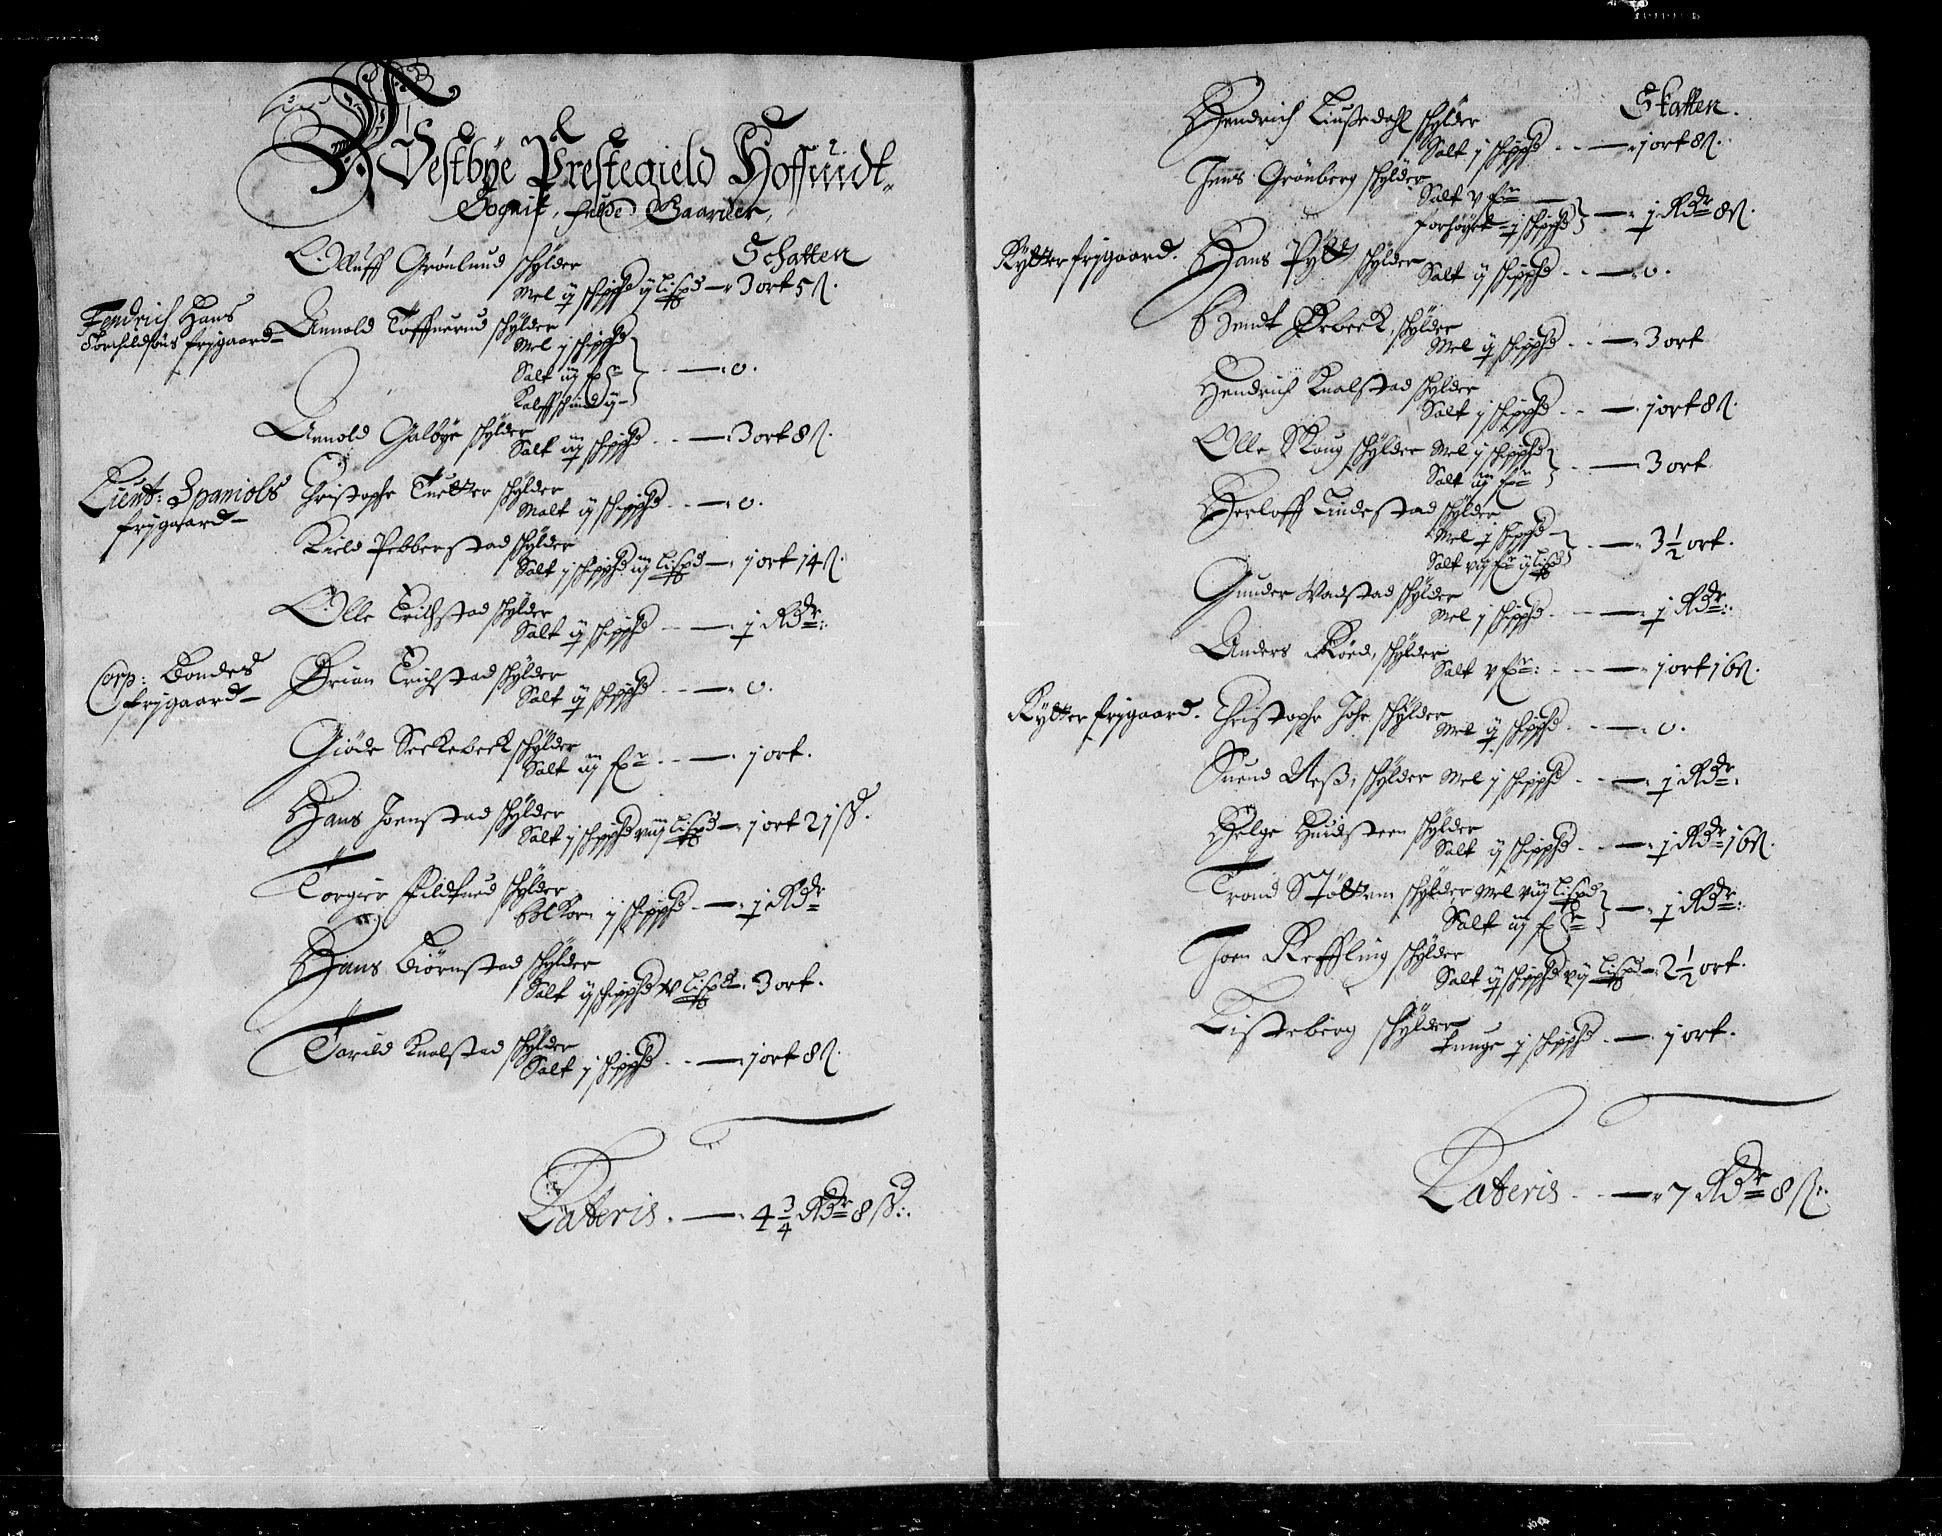 Vestbye Prestegield Hoffuidt
Sognit, fulde Gaarder,
Schatten
Olluff Grönlund schylder
Mel ij schippd ij Lispd — 3 ort 5 ß.
Fendrich Hans
Torchildsøns frijgaard —
Annold Toffnerud schylder
Mel j schippd
Salt iij fr
Kalffschind ij — } — 0.
Annold Galbye schylder
Salt iij schippd — 3 ort 8 ß.
Lieut: Spaniols
frijgaard —
Christophr Tuetter schylder
Malt ij schippd — 0.
Kield Pebberstad schylder
Salt j schippd iij Lispd — j ort 14 ß.
Olle Erichstad schylder
Salt ij schippd — j Rdr:
Corp: Bondes
frijgaard —
Ørian Erichstad schylder
Salt ij schippd — 0.
Giöde Seckebeck schylder
Salt iij fr — j ort.
Hans Joenstad schylder
Salt j schippd viij Lispd — j ort 21 ß.
Torgier Fildtued schylder
bolkorn j schippd — j Rdr
Hans Biörnstad schylder
Salt ij schippd v Lispd — 3 ort.
Tarild Knalstad schylder
Salt j schippd — j ort 8 ß.
Lateris. — 4 3/4 Rdr 8 ß:.
Skatten.
Hendrich Liusedahl schylder
Salt j schippd — j ort 8 ß.
Jens Grönberg schylder
Salt v fr —
forhöyet — j schippd } — j Rdr 8 ß.
Rytter frijgaard.
Hans Pytt schylder
Salt ij schippd — 0.
Bendt Ørbeck, schylder
Mel ij schippd — 3 ort
Hendrich Knalstad schylder
Salt j schippd — j ort 8 ß.
Olle Skoug schylder Mel j schippd
Salt iij fr } — 3 ort
Herloff Lindestad schylder
Mel j schippd —
Salt vij fr ij Lispd } — 3 1/2 ort.
Gunder Wadstad schylder
Mel j schippd — j Rdr:
Anders Röed, schylder
Salt v fr: — j ort 16 ß.
Rytter frijgaard.
Christophr Hohr schylder
Mel ij schippd — 0.
Suend Neß, schylder Mel j schippd — j Rdr.
Helge Huidsteen schylder
Salt ij schippd — j Rdr 16 ß.
Trond Støttum schylder Mel viij Lispd
Salt iij fr } — j Rdr:
Joen Reffling schylder
Salt ij schippd vij Lispd — 2 1/2 ort.
Listeberg schylder
tunge j schippd — j ort.
Lateris — 7 Rdr 8 ß: